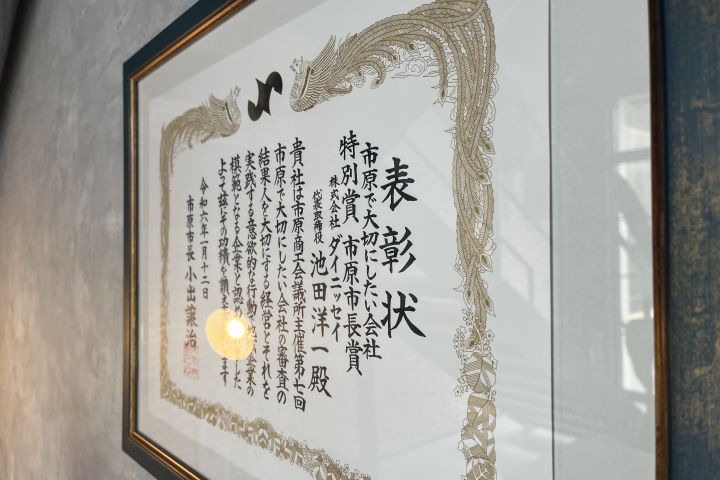 表彰状
市原で大切にしたい会社
特別賞 市原市長賞
株式会社 ダイニッセイ
代表取締役 池田洋一殿
貴社は市原商工会議所主催第七回
市原で大切にしたい会社の審査の
結果人を大切にする経営とそれを
実践する意欲的な行動が 企業の
模範となる企業と認め した
よって茲にその功績を讃え ます
令和六年一月十二日
市原市長 小出譲治